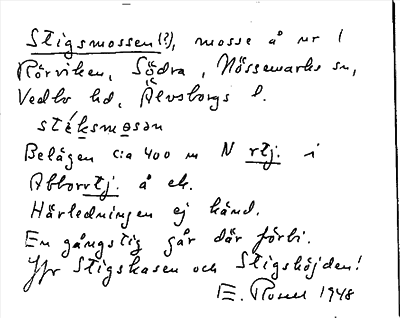 Stigsmossen(?), mosse å nr 1
Rörviken, Södra, Nössemarks sn,
Vedbo hd, Älvsborgs l.
stéksmosən
Belägen c:a 400 m N rtj. i
Abborrtj. å ek.
Härledningen ej känd.
En gångstig går där förbi.
Jfr Stigskasen och Stigshöjden!
E. 1948